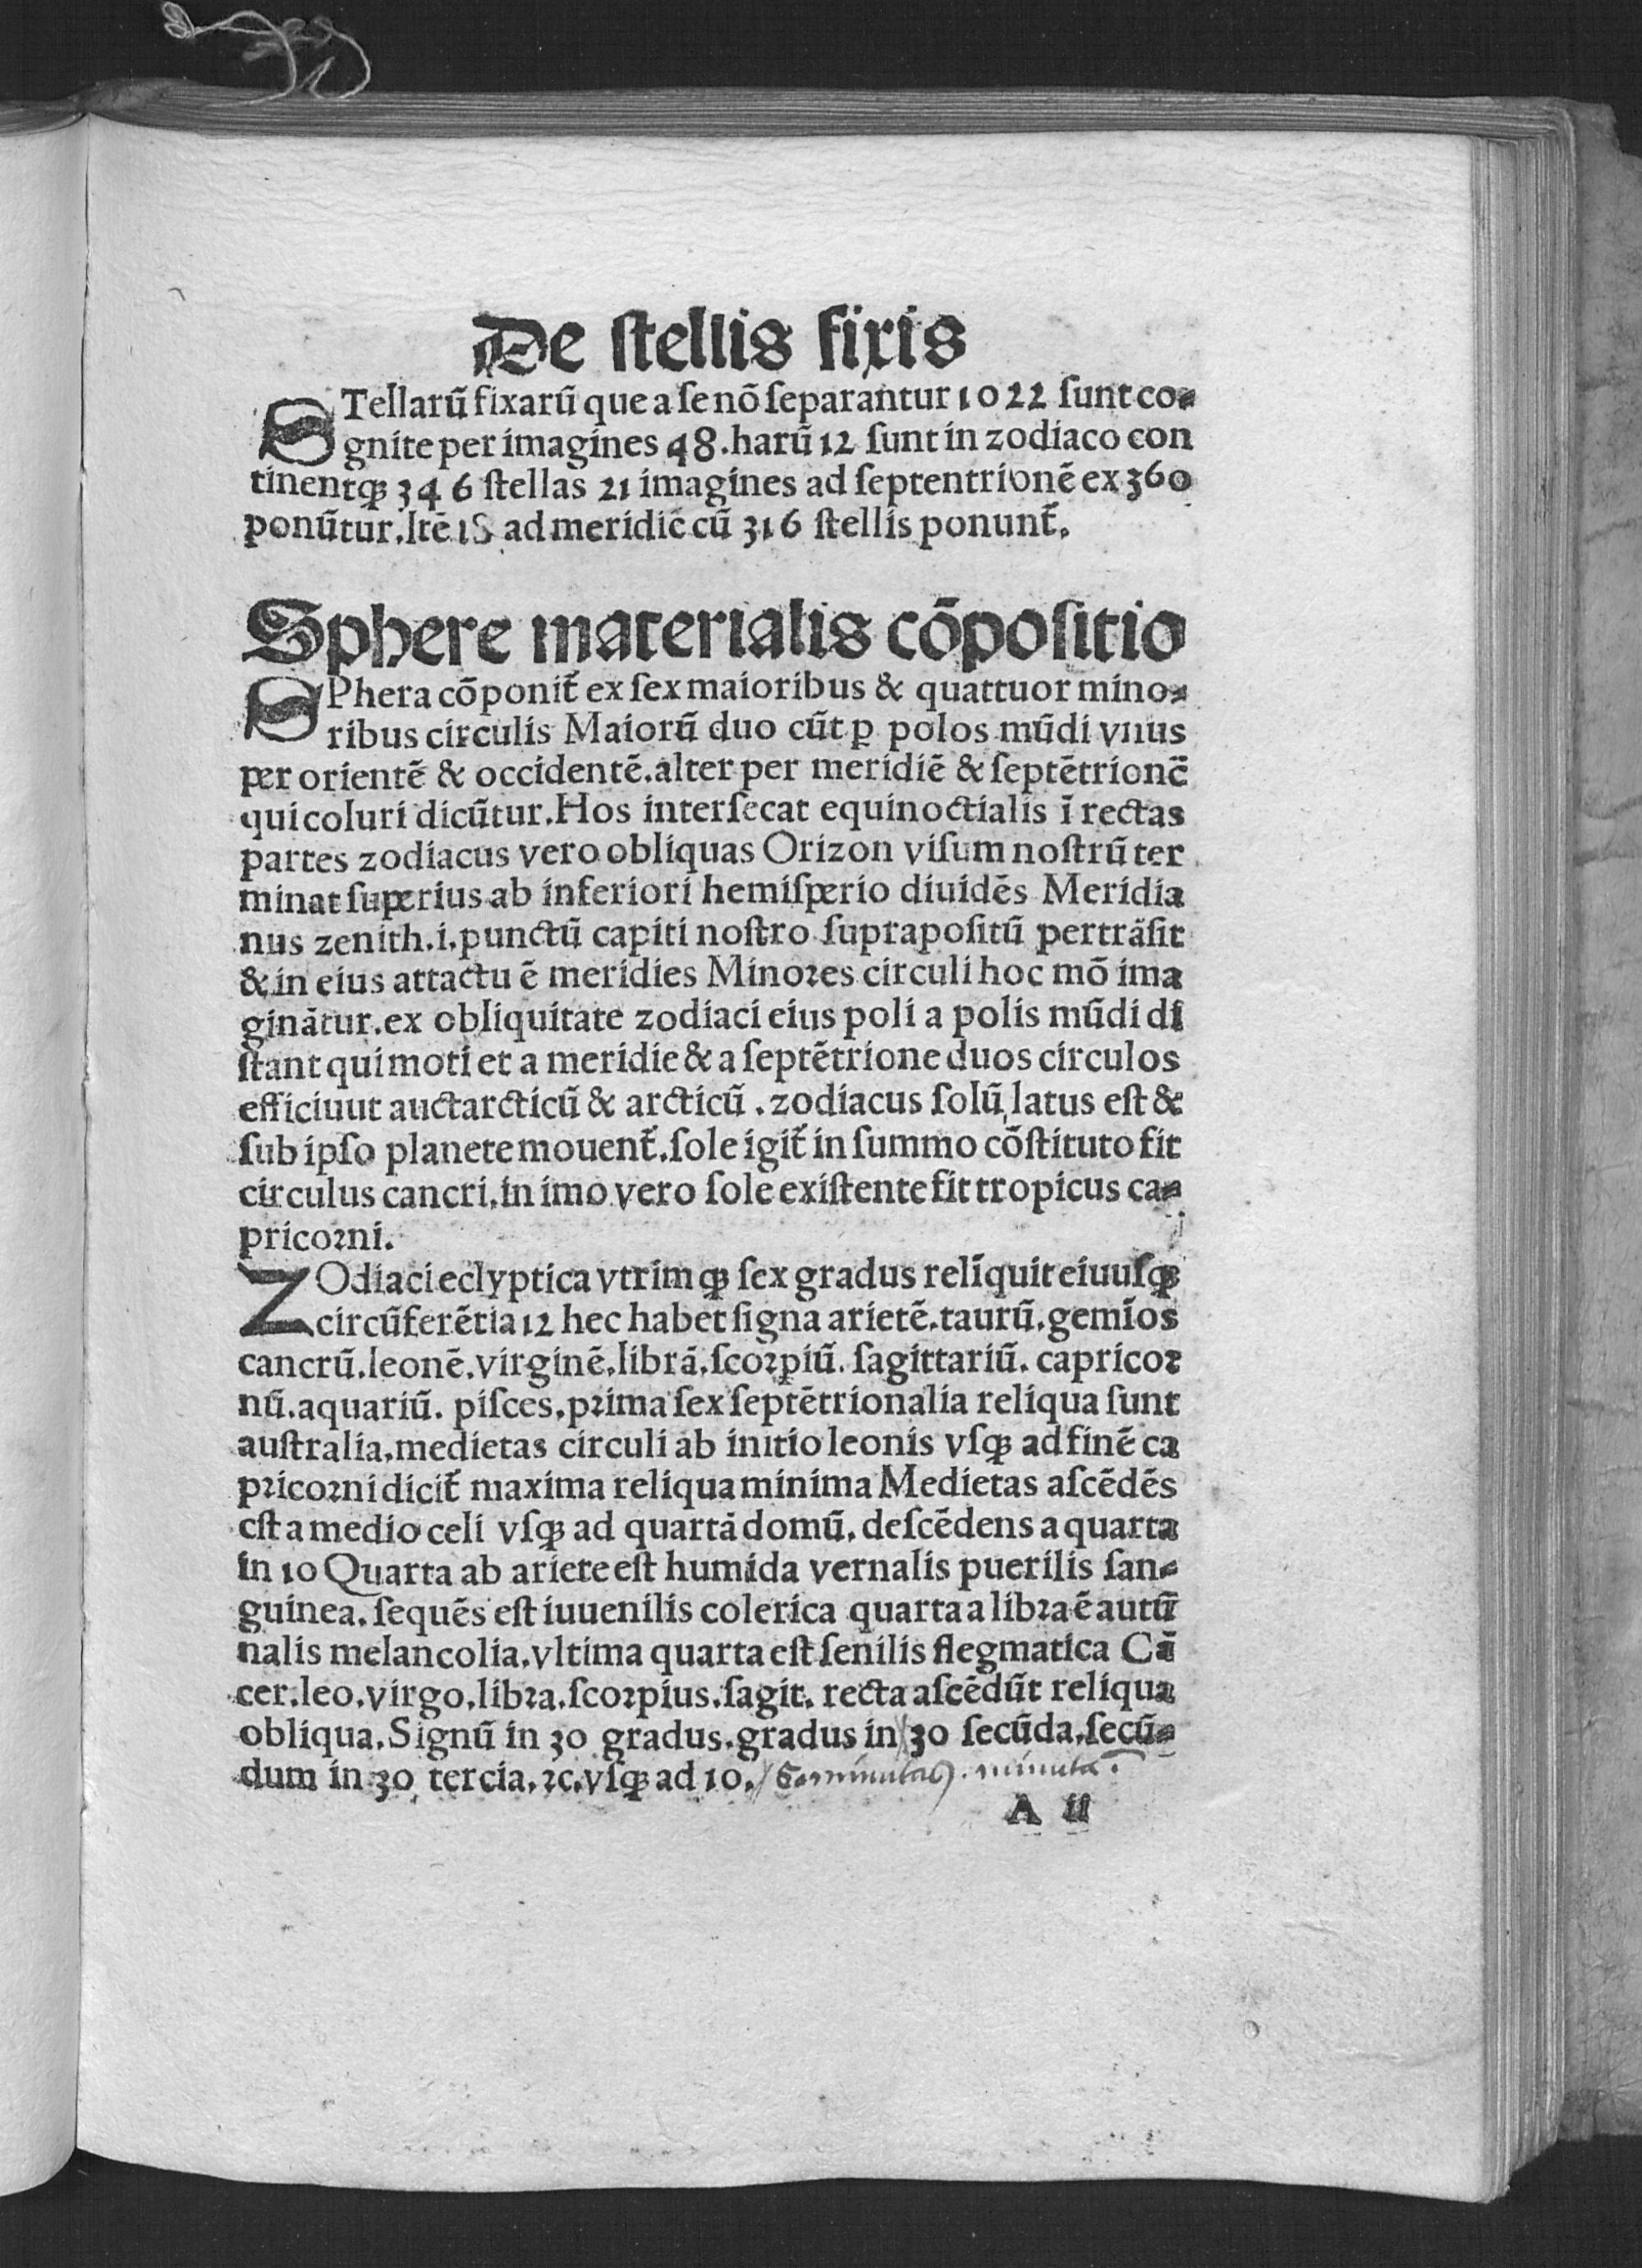 De stellis fixis
STellarū fixarū que a se nō separantur 1022 sunt co-
gnite per imagines 48. harū 12 sunt in zodiaco con
tinentqꝫ 346 stellas 21 imagines ad septentrionē ex 360
ponūtur. Itē 15 ad meridiē cū 316 stellis ponunt᷑.
Sphere materialis cōpositio
SPhera cōponit᷑ ex sex maioribus & quattuor mino-
ribus circulis Maiorū duo cūt ꝑ polos mūdi vnus
per orientē & occidentē. alter per meridiē & septētrionē
qui coluri dicūtur. Hos intersecat equinoctialis ī rectas
partes zodiacus vero obliquas Orizon visum nostrū ter
minat superius ab inferiori hemisperio diuidēs Meridia
nus zenith. i. punctū capiti nostro suprapositū pertrāsit
& in eius attactu ē meridies Minores circuli hoc mō ima
ginātur. ex obliquitate zodiaci eius poli a polis mūdi di
stant qui moti et a meridie & a septētrione duos circulos
efficiuut auctarcticū & arcticū. zodiacus solū latus est &
sub ipso planete mouent᷑. sole igit᷑ in summo cōstituto fit
circulus cancri. in imo vero sole existente fit tropicus ca-
pricorni.
ZOdiaci eclyptica vtrimqꝫ sex gradus relīquit eiuusqꝫ
circūferētia 12 hec habet signa arietē. taurū. gemīos
cancrū. leonē. virginē. librā. scorpiū. sagittariū. capricor
nū. aquariū. pisces. prima sex septētrionalia reliqua sunt
australia. medietas circuli ab initio leonis vsqꝫ ad finē ca
pricorni dicit᷑ maxima reliqua minima Medietas ascēdēs
est a medio celi vsqꝫ ad quartā domū. descēdens a quarta
in 10 Quarta ab ariete est humida vernalis puerilis san-
guinea. sequēs est iuuenilis colerica quarta a libra ē autū
nalis melancolia. vltima quarta est senilis flegmatica Cā
cer. leo. virgo. libra. scorpius. sagit. recta ascēdūt reliqua
obliqua. Signū in 30 gradus. gradus in 30 secūda. secū-
dum in 30 tercia. ⁊c. vsqꝫ ad 10. minuta.
A ii